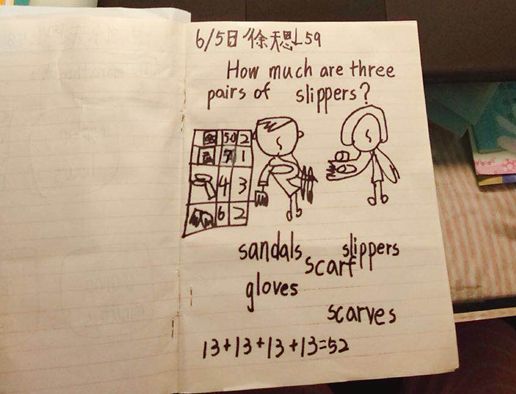 6/5日 徐思 L59
How much are three
pairs of slippers?
50 2
1
4 3
6 2
sandals slippers
scarf
gloves
scarves
13+13+13+13=52